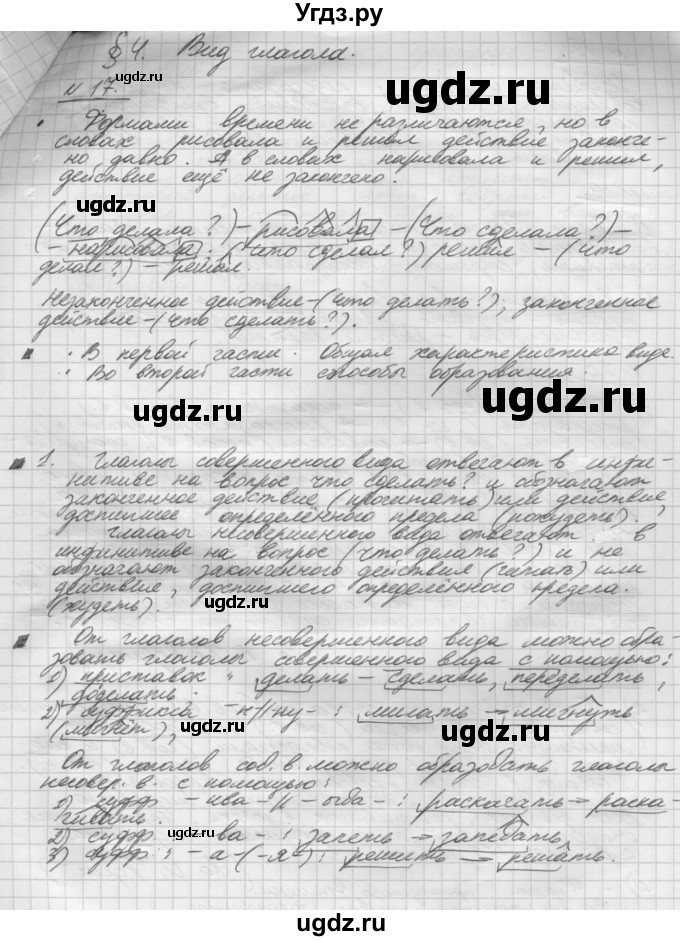 Угдз.ру
§ 4. Вид глагола.
ugdz.ru
ugdz.ru
N 17.
Формами времени не различаются, но в
словах рисовала и решал действие законче-
но давно. А в словах нарисовала и решил,
действие ещё не закончено.
ugdz.ru
ugdz.ru
(Что делала?) – рисовала – (Что сделала?) –
– нарисовала, (что сделал?) решил – (что
делал?) – решал.
Незаконченное действие – (что делать?); законченное
действие – (что сделать?).
ugdz.ru
В первой части. Общая характеристика вида.
Во второй части способы образования.
ugdz.ru
ugdz.ru
1. Глаголы совершенного вида отвечают в инфи-
нитиве на вопрос что сделать? и обозначают
законченное действие (прочитать) или действие,
достигшее определённого предела (похудеть).
Глаголы несовершенного вида отвечают в
инфинитиве на вопрос (что делать?) и не
обозначают законченного действия (читать) или
действие, достигшего определённого предела.
(худеть).
ugdz.ru
ugdz.ru
От глаголов несовершенного вида можно обра-
зовать глаголы совершенного вида с помощью:
1) приставок делать – сделать, переделать,
доделать.
2) суффикса -н-//-ну-: мигать → мигнуть
(мигнёт),
ugdz.ru
ugdz.ru
От глаголов сов. в. можно образовать глаголы
несовер. в. с помощью:
1) суфф -ива-//-ыва-: раскачать → раска-
чивать.
2) суфф -ва-: запеть → запевать
3) суфф: -а-(-я-): решить → решать.
ugdz.ru
ugdz.ru
ugdz.ru